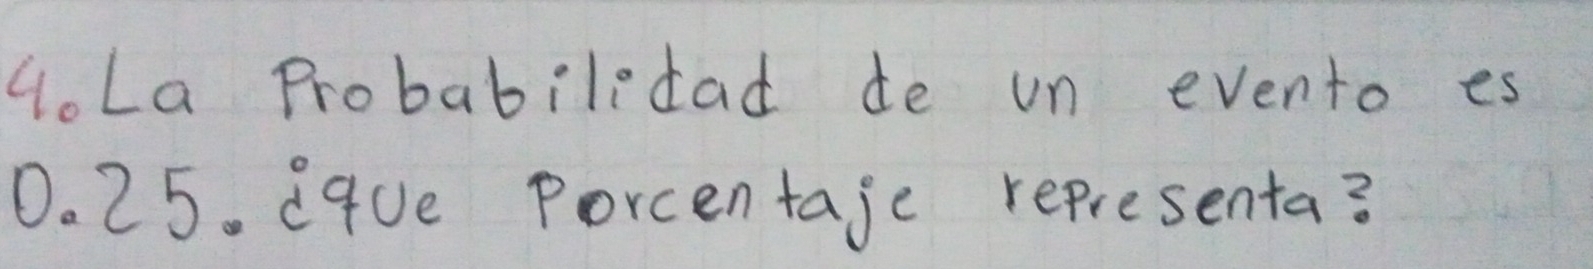 4. La Probabilidad de un evento es
0.25. ¿que Porcentaje representa?